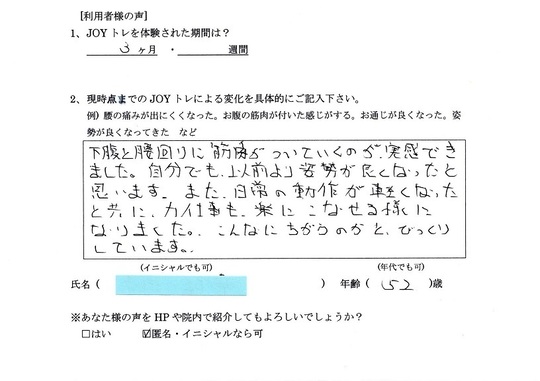 ［利用者様の声］
1、JOYトレを体験された期間は？
3ヶ月 ・ 週間
2、現時点までのJOYトレによる変化を具体的にご記入下さい。
例）腰の痛みが出にくくなった。お腹の筋肉が付いた感じがする。お通じが良くなった。姿
勢が良くなってきた　など
下腹と腰回りに筋肉がついていくのが、実感でき
ました。自分でも、以前より姿勢が良くなったと
思います。また、日常の動作が軽くなった
と共に、力仕事も、楽にこなせる様に
なりました。こんなにちがうのかと、びっくり
しています。
（イニシャルでも可） （年代でも可）
氏名（ ） 年齢（ 52 ）歳
※あなた様の声をHPや院内で紹介してもよろしいでしょうか？
□はい ☑匿名・イニシャルなら可